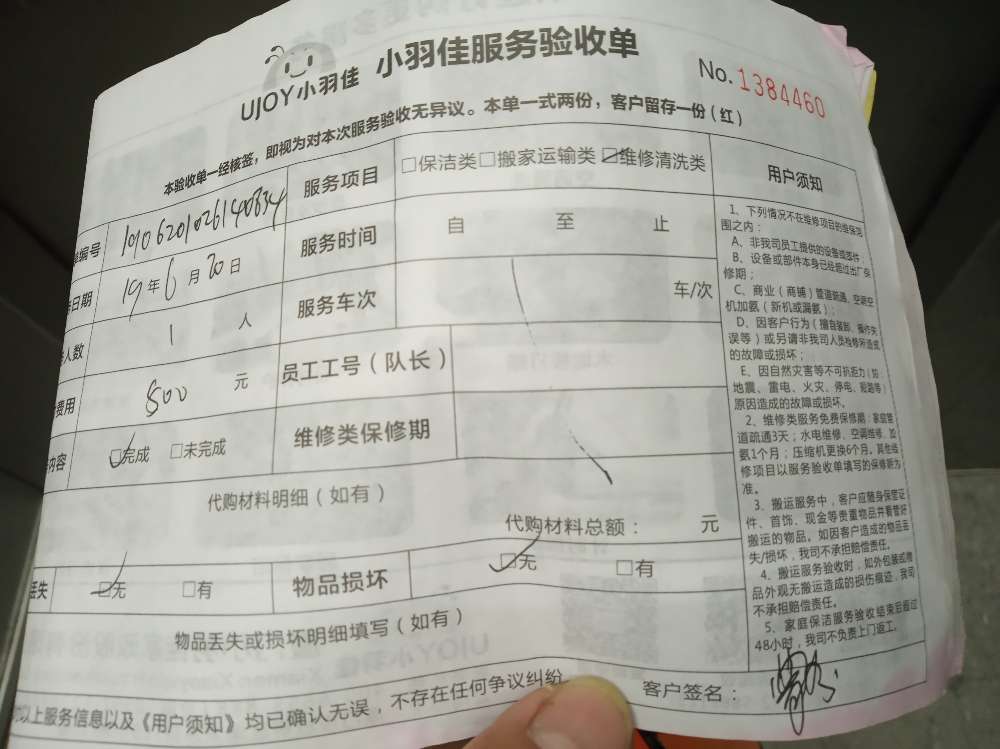 UJOY小羽佳 小羽佳服务验收单
No.1384460
本验收单一经核签，即视为对本次服务验收无异议。本单一式两份，客户留存一份（红）
编号 服务项目 □保洁类□搬家运输类☑维修清洗类
日期 19年6月20日 服务时间 自 至 止
人数 1 人 服务车次 车/次
费用 500 元 员工工号（队长）
内容 ☑完成 □未完成 维修类保修期
代购材料明细（如有）
代购材料总额： 元
丢失 ☑无 □有 物品损坏 ☑无 □有
物品丢失或损坏明细填写（如有）
以上服务信息以及《用户须知》均已确认无误，不存在任何争议纠纷
客户签名：
用户须知
1、下列情况不在维修项目的维保范
围之内：
A、非我司员工提供的设备或部件
B、设备或部件本身已经超过出厂保
修期；
C、商业（商铺）管道疏通、空调空
机加氨（新机或漏氨）；
D、因客户行为（擅自装卸、操作失
误等）或另请非我司人员检修所造成
的故障或损坏；
E、因自然灾害等不可抗力（如
地震、雷电、火灾、停电、
原因造成的故障或损坏。
2、维修类服务免费保修期：家庭管
道疏通3天；水电维修、空调维修、加
氨1个月；压缩机更换6个月。其他维
修项目以服务验收单填写的保修期为
准。
3、搬运服务中，客户应随身保管证
件、首饰、现金等贵重物品并看管好
搬运的物品。如因客户造成的物品丢
失/损坏，我司不承担赔偿责任。
4、搬运服务验收时，如外包装或物
品外观无搬运造成的损伤痕迹，我司
不承担赔偿责任。
5、家庭保洁服务验收结束后超过
48小时，我司不负责上门返工。